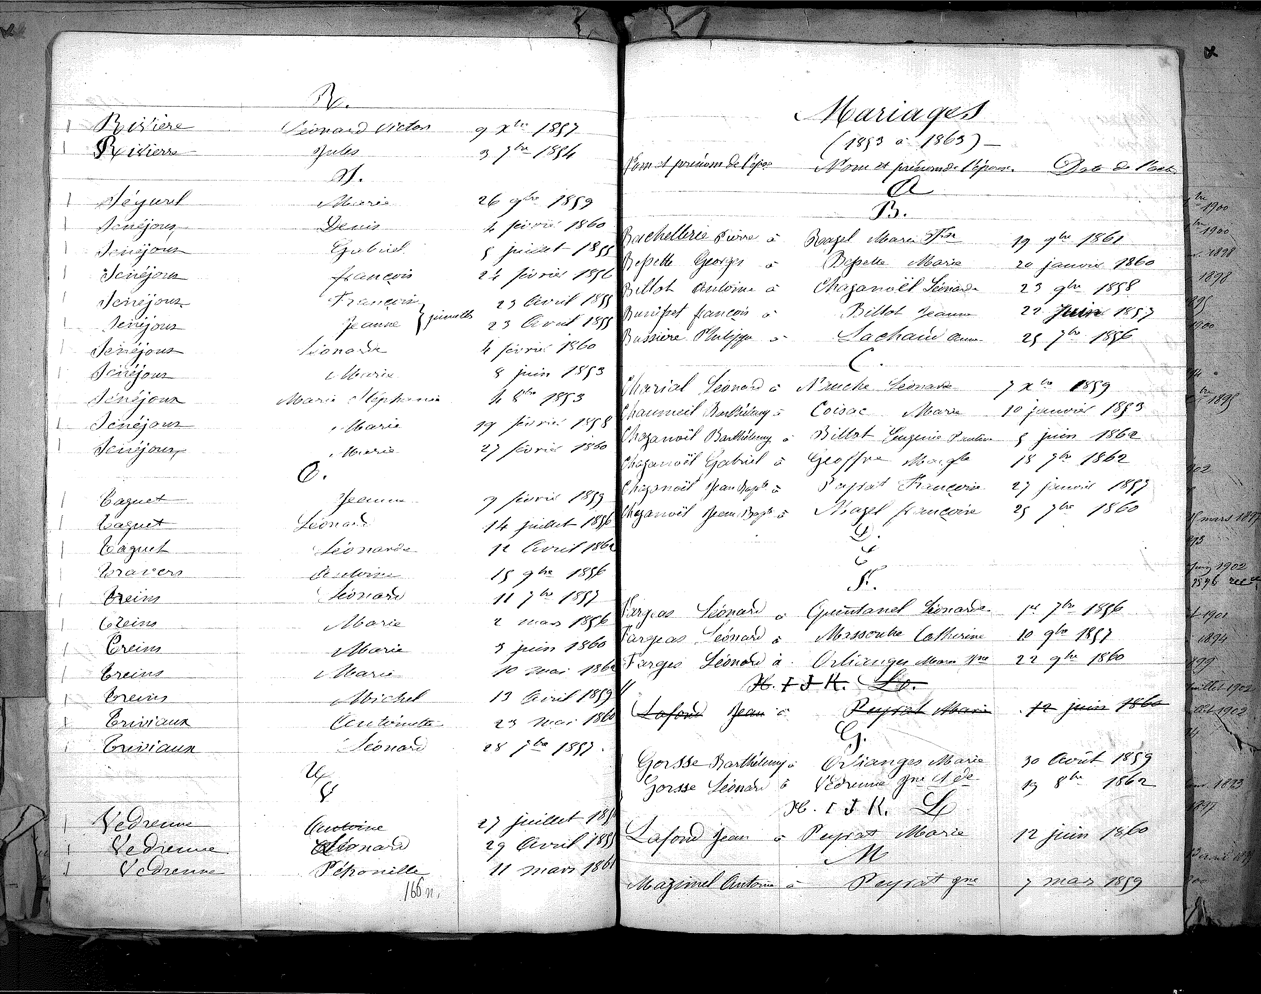 R.
Rivière Léonard Victor 9 Xbre 1857
Rivierre Jules 3 7bre 1854
S.
Ségurel Marie 26 9bre 1859
Senéjoux Denis 4 février 1860
Senéjoux Gabriel 5 juillet 1855
Senéjoux françois 24 février 1856
Senéjoux Françoise 23 Avril 1855
Senéjoux Jeanne } jumelles 23 Avril 1855
Senéjoux Léonarde 4 février 1860
Senéjoux Marie 8 juin 1853
Senéjoux Marie Stéphanie 4 8bre 1853
Senéjoux Marie 19 février 1858
Senéjoux Marie 27 février 1860
Taguet Jeanne 9 février 1859
Taguet Léonard 14 juillet 1856
Taguet Léonarde 12 Avril 1862
Travers Antoine 15 9bre 1856
Treins Léonard 11 7bre 1857
Treins Marie 2 mars 1856
Treins Marie 3 juin 1860
Treins Marie 10 mai 1862
Treins Michel 13 Avril 1859
Triviaux Antoinette 23 mai 1860
Triviaux Léonard 28 7bre 1857.
U
V
Vedrenne Antoine 27 juillet
Vedrenne Léonard 29 Avril 1855
Vedrenne Pétronille 11 mars 1861
166 n.
Mariages
(1853 à 1863)
Nom et prénom de l'époux Nom et prénom de l'épouse. Date de l'acte
A
B.
Bachellerie Pierre à Bagel Marie 19 9bre 1861
Bessette Georges à Bessette Marie 20 janvier 1860
Billot Antoine à Chazanoël Léonarde 23 9bre 1858
françois à Billot Jeanne 22 juin 1857
Bussière Philippe à Lachaud Anne 25 7bre 1856
C.
Charial Léonard à Nauche Léonarde 7 Xbre 1859
Chaumeil Barthélemy à Coissac Marie 10 janvier 1853
Chazanoël Barthélemy à Billot Eugénie 5 juin 1862
Chazanoël Gabriel à Geoffre 15 7bre 1862
Chazanoël Jean Bapte à Peyrat Françoise 27 janvier 1857
Chazanoël Jean Bapte à Magel françoise 25 7bre 1860
D.
E
F.
Farges Léonard à Guintanel Léonarde 1er 7bre 1856
Farges Léonard à Massoubre Catherine 10 9bre 1857
Farges Léonard à Orliangès Marie 22 9bre 1860
H. I J K. L.
Lafond Jean à Peyrat Marie 12 juin 1860
G.
Gorsse Barthélemy à Orliangès Marie 30 Août 1859
Gorsse Léonard à Védrenne 19 8bre 1862
H. I J K. L
Lafond Jean à Peyrat Marie 12 juin 1860
M
Mazimel Antoine à Peyrat Jne 7 mars 1859